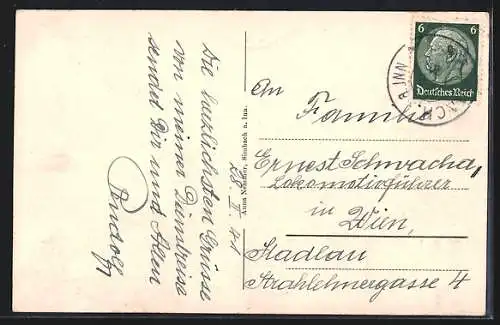 Die herzlichsten Grüsse
von meiner Dienstreise
sendet Dir und Allen
Rudolf
28. II. 41
Anna Nemmer, Simbach a. Inn.
6 6
Deutsches Reich
A. INN
An
Familie
Ernest Schwacha,
Lokomotivführer
in
Wien,
Stadlau
Strahlehnergasse 4